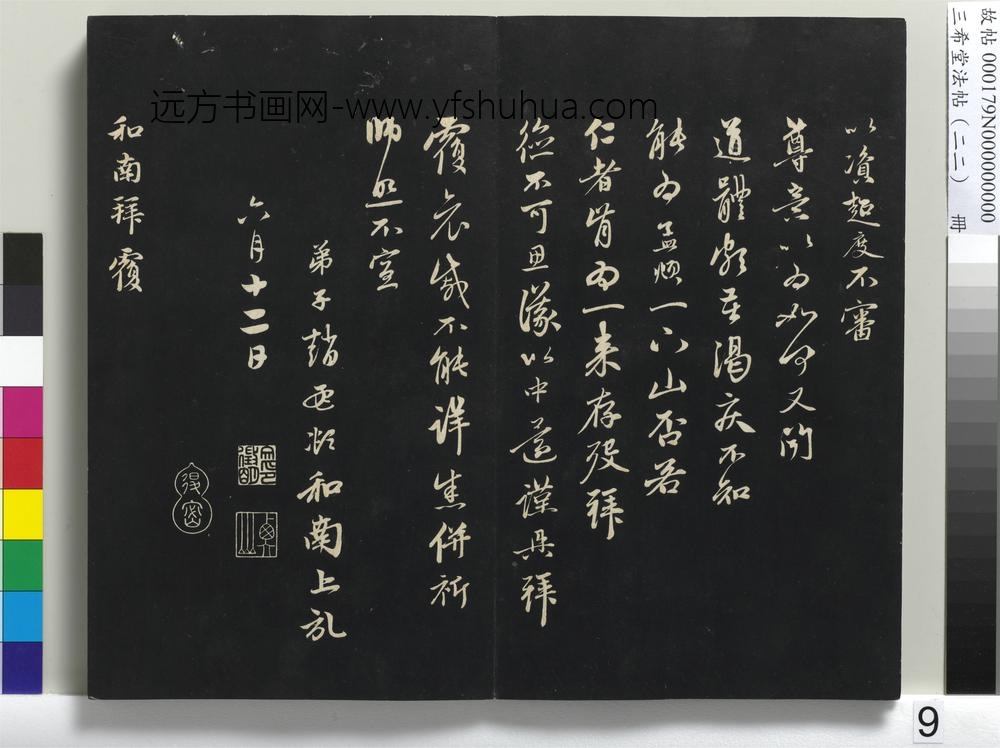 以資超度不審
尊意以為如何又聞
道體頗苦渴疾不知
能為孟頫一下山否若
仁者肯為一來存歿拜
德不可思議以中遠謹再拜
覆哀感不能詳悉併祈
師照不宣
弟子趙孟頫和南上記
六月十二日
和南拜覆
远方书画网-www.yfshuhua.com
故帖 000179N000000000
三希堂法帖（二二） 冊
9